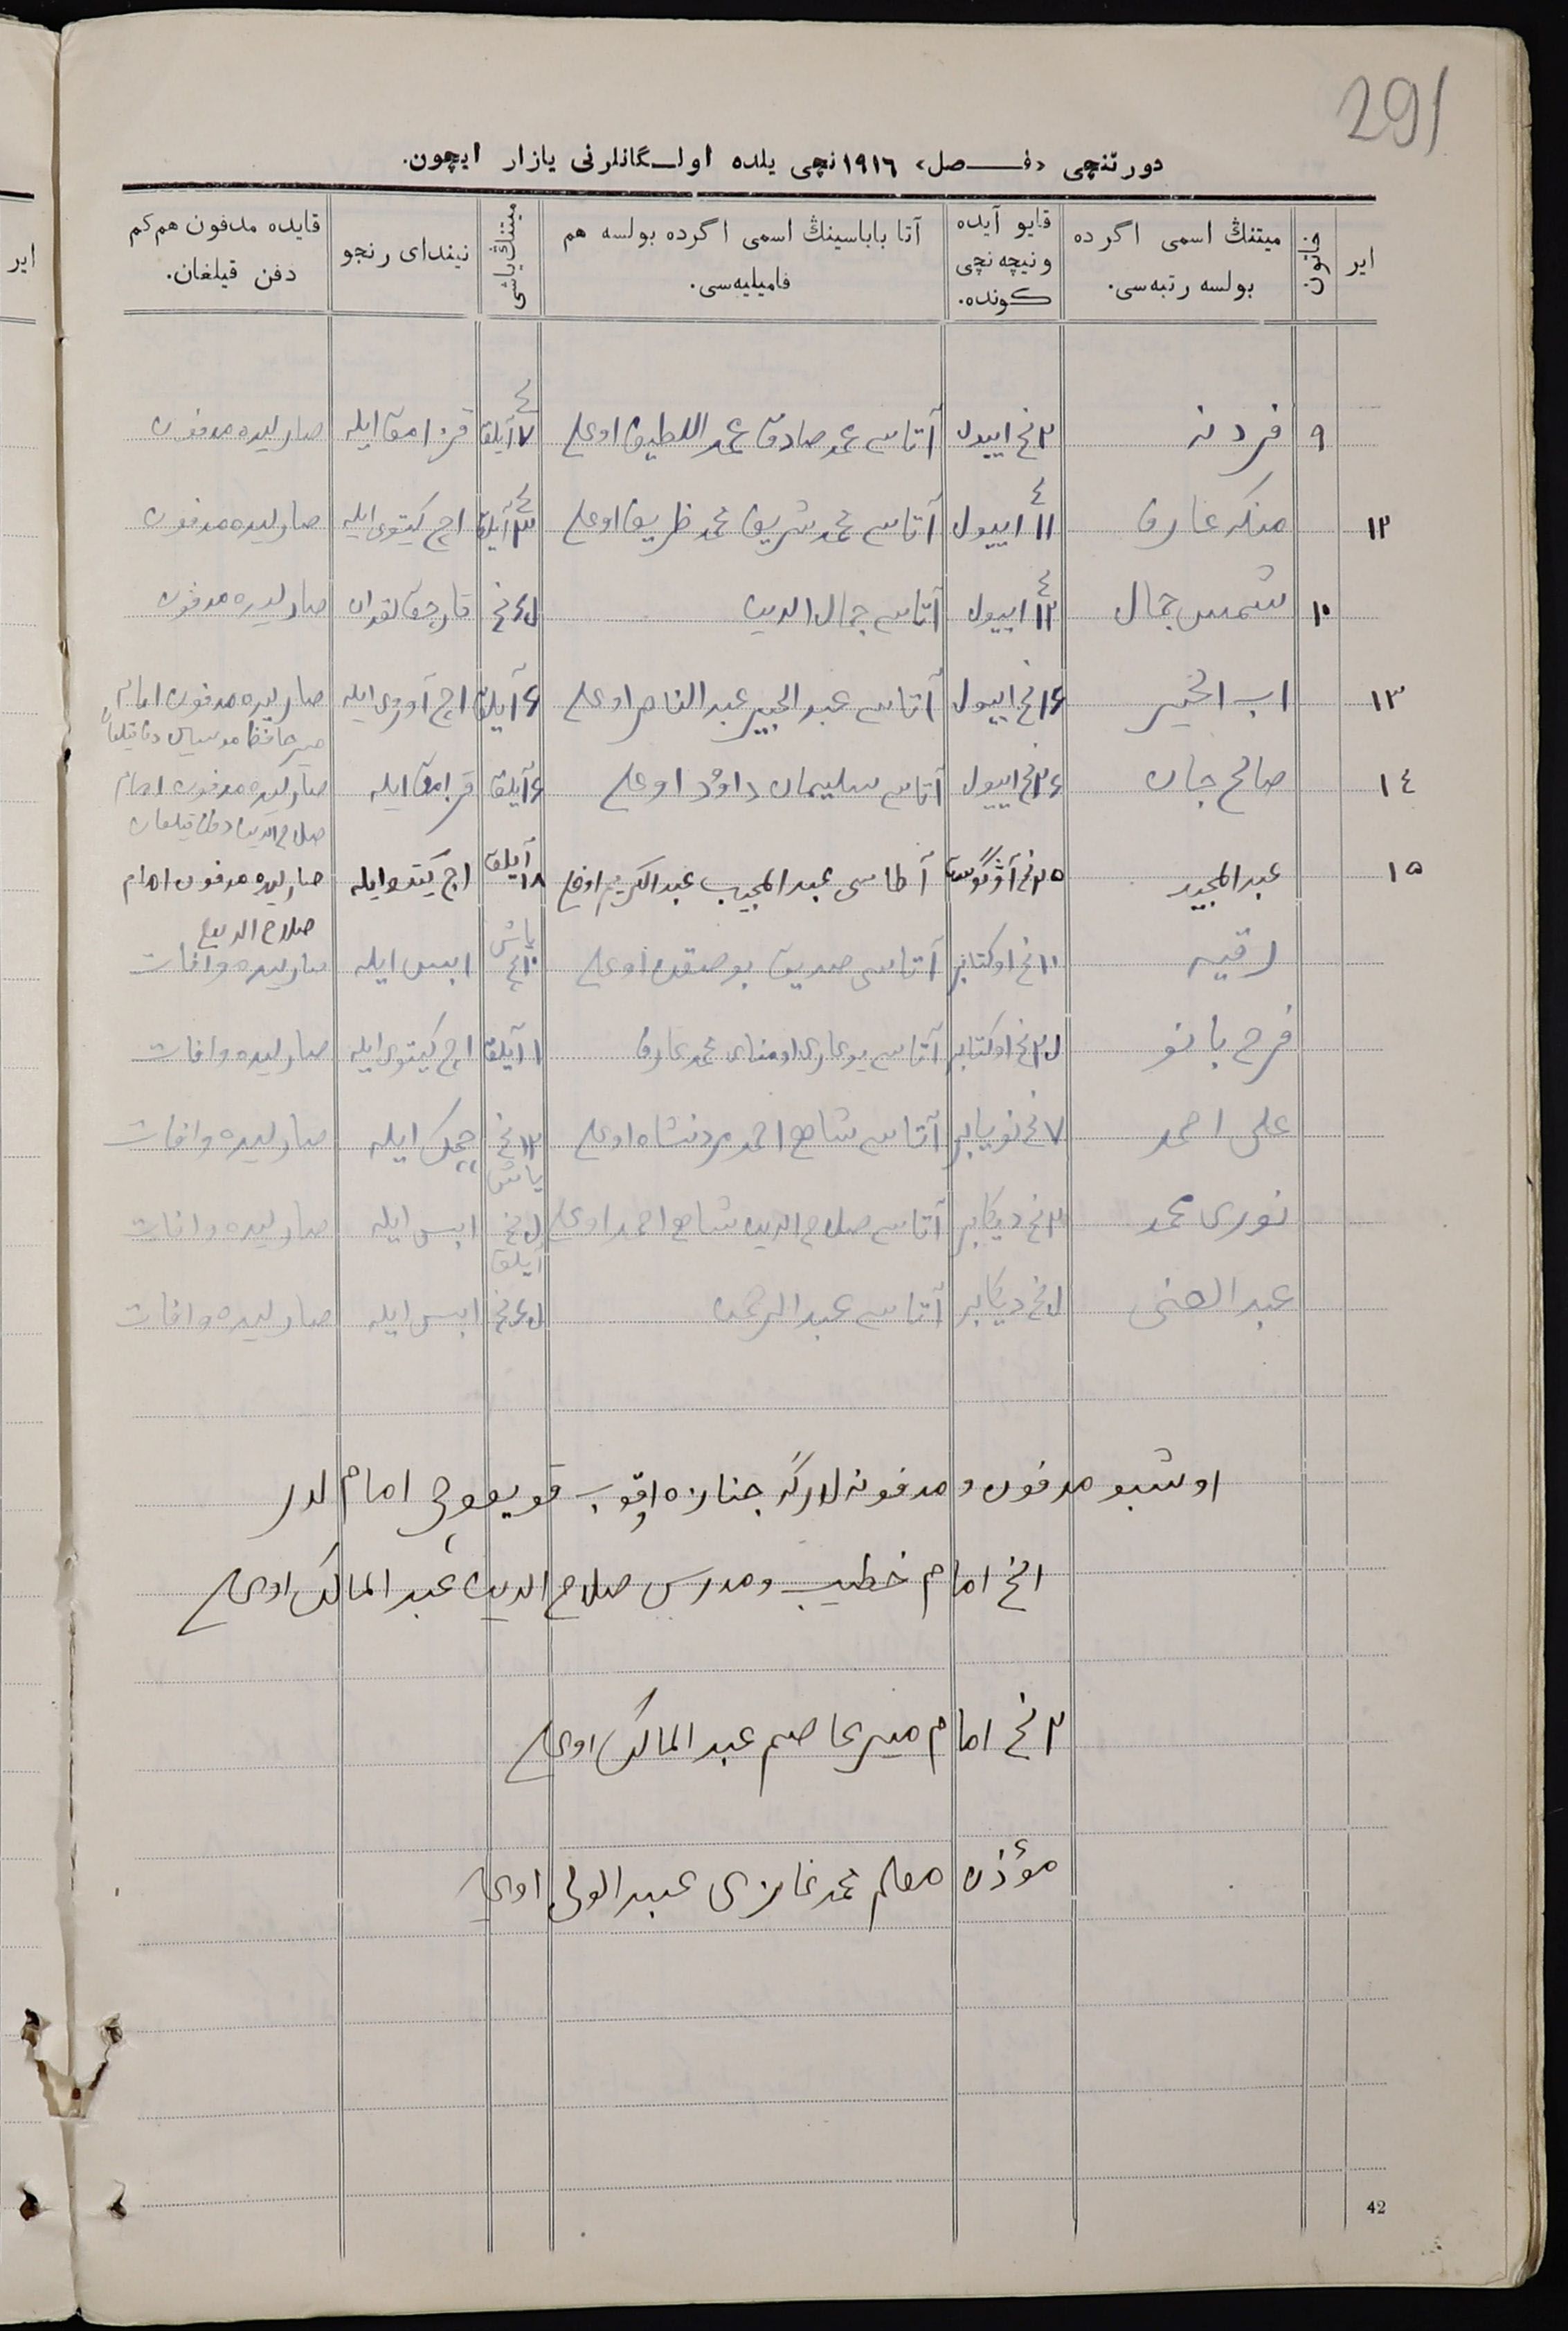 291
دورتنچی «فـصل» ١٩١٦نچی یلده اولـگانلرنی یازار ایچون.
ایر
خاتون
میتنڭ اسمی اگرده بولسه رتبه‌سی.
قایو آیده ونیچه نچی كونده.
آتا باباسینڭ اسمی اگرده بولسه هم فامیلیه‌سی.
میتنڭ یاشی
نیندای رنجو
قایده مدفون هم كم دفن قیلغان.
٩ ٢نچ ایيول آتاسی محمد صادق عبد اللطیف اوغلی ٧ آیلق قزامق ایله صارلیده مدفون
١٢ منكه عارف ١١ ایيول آتاسی محمد شریف محمد ظریف اوغلی ٣ آیلق اچ كیتوی ایله صارلیده مدفون
١٠ شمس جمال ١٢ ایيول آتاسی جمال الدین صارلیده مدفون
١٣ اب الخیر ١٤نچ ایيول آتاسی عبد الناصر اوغلی ٤ آیلق اچ آوروی ایله صارلیده مدفون امام
١٤ صالح جان ٢٤نچ ایيول آتاسی سلیمان داوُد اوغلی ٤ آیلق قزامق ایله صارلیده مدفون امام
صلاح الدین دفن قیلغان
١٥ عبد المجید ٢٥نچ آوگوست آطاسی عبد المجیب عبد الكریم اوغلی ١٨ آیلق اچ كیتو ایله صارلیده مدفون امام
صلاح الدین
رقیه ١١نچ اوكتابر آتاسی صدیق اوغلی ١٠نچ یاش ایس ایله صارلیده وافات
فرح بانو اوكتابر آتاسی محمد عارف ١ آیلق اچ كیتوی ایله صارلیده وافات
علی احمد ٧نچ نویابر آتاسی شاهی احمد مردنشاه اوغلی ١٢نچ یاش چچك ایله صارلیده وافات
نوری محمد ٢نچ دیكابر آتاسی صلاح الدین شاهی احمد اوغلی آیلق ایس ایله صارلیده وافات
عبد الغنی دیكابر آتاسی عبد الرحمن ایس ایله صارلیده وافات
اوشبو مدفون و مدفونه لارگه جنازه اوقوب قویغوچی امام لدر
١نچ امام خطیب ومدرس صلاح الدین عبد المالك اوغلی
٢نچ امام میر عاصم عبد المالك اوغلی
مؤذن معلم محمد غازی عبید الولی اوغلی
42
ایر